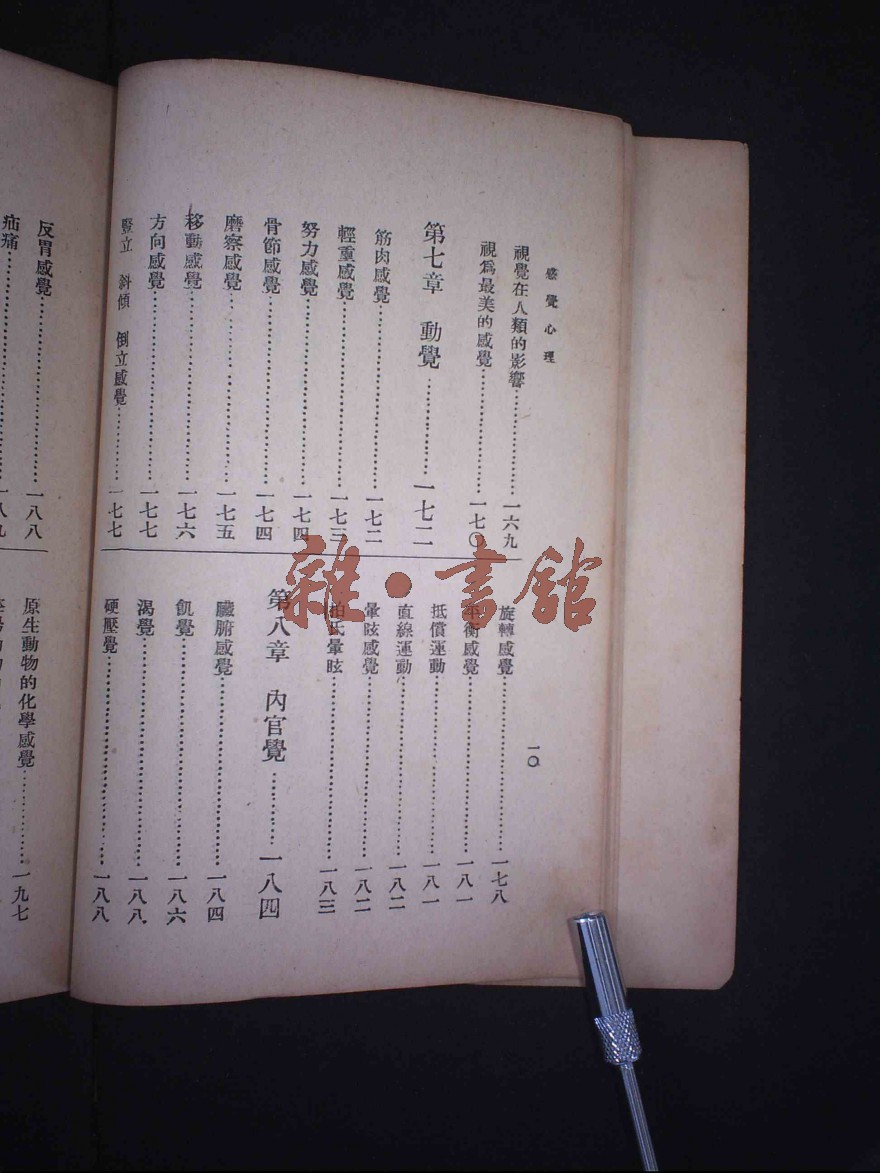 感覺心理
視覺在人類的影響……一六九
視爲最美的感覺……一七〇
第七章　動覺……一七二
筋肉感覺……一七二
輕重感覺……一七三
努力感覺……一七四
骨節感覺……一七四
磨察感覺……一七五
移動感覺……一七六
方向感覺……一七七
豎立　斜傾　倒立感覺……一七七
一〇
旋轉感覺……一七八
平衡感覺……一八一
抵償運動……一八一
直線運動……一八二
暈眩感覺……一八二
柏氏暈眩……一八三
第八章　內官覺……一八四
臟腑感覺……一八四
飢覺……一八六
渴覺……一八八
硬壓覺……一八八
反胃感覺……一八八
疝痛……一八九
原生動物的化學感覺……一九七
雜·書館